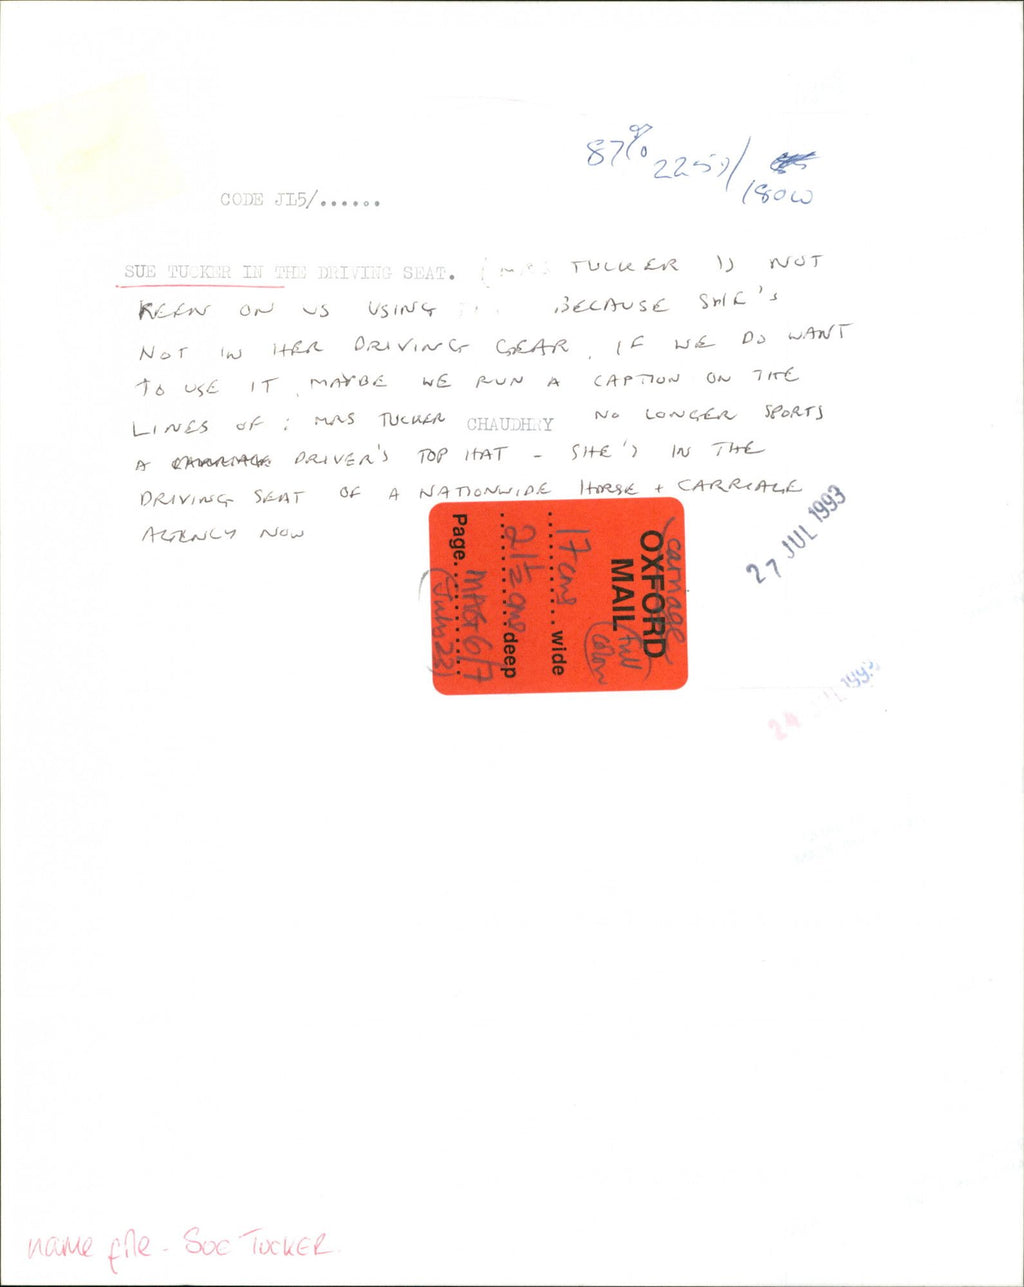 87%
2250/
180W
CODE JL5/......
SUE TUCKER IN THE DRIVING SEAT. (MRS TUCKER IS NOT
KEEN ON US USING BECAUSE SHE'S
NOT IN HER DRIVING GEAR. IF WE DO WANT
TO USE IT MAYBE WE RUN A CAPTION ON THE
LINES OF: MRS TUCKER CHAUDHRY NO LONGER SPORTS
A CARRIAGE DRIVER'S TOP HAT - SHE'S IN THE
DRIVING SEAT OF A NATIONWIDE HORSE + CARRIAGE
AGENCY NOW
27 JUL 1993
carriage
OXFORD
MAIL
(full
colour
17 cms wide
21½ cms deep
Page MAG 6/7
(July 23)
24 JUL 1993
name file - SUE TUCKER